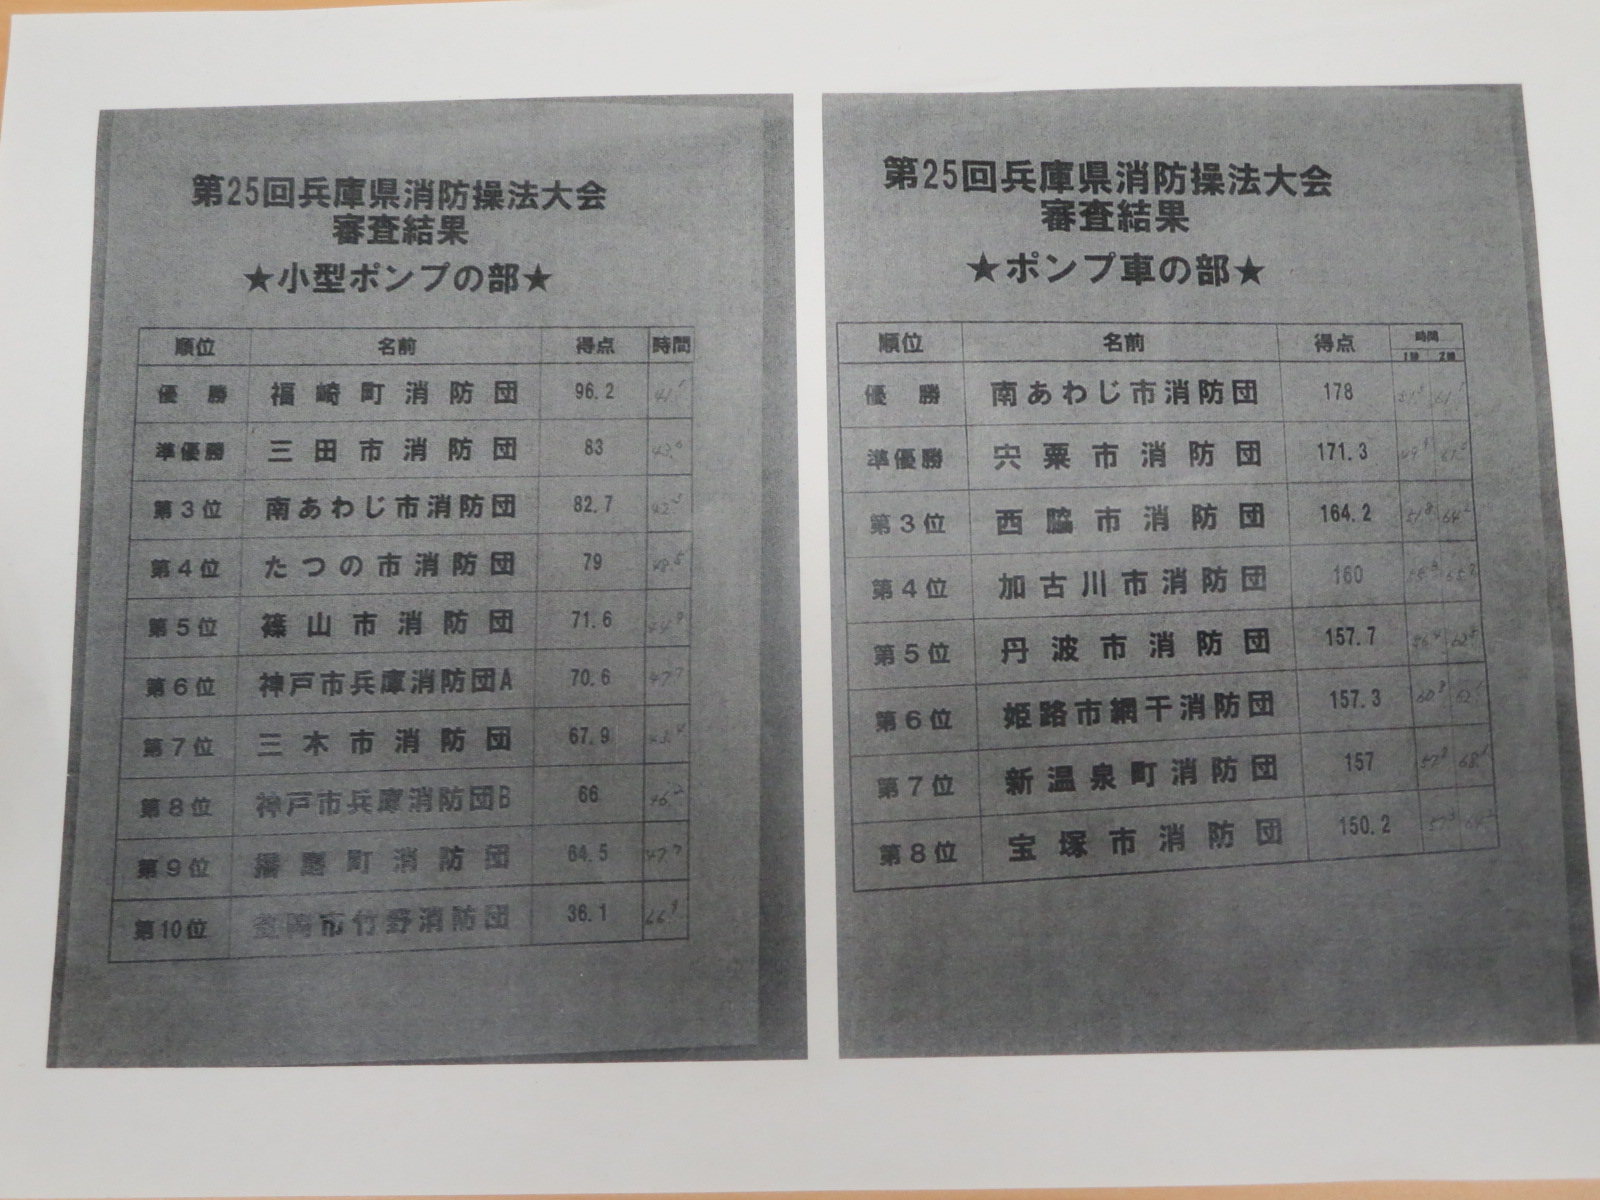 第25回兵庫県消防操法大会
審査結果
★小型ポンプの部★
順位 名前 得点 時間
優勝 福崎町消防団 96.2
準優勝 三田市消防団 83
第3位 南あわじ市消防団 82.7
第4位 たつの市消防団 79
第5位 篠山市消防団 71.6
第6位 神戸市兵庫消防団A 70.6
第7位 三木市消防団 67.9
第8位 神戸市兵庫消防団B 66
第9位 播磨町消防団 64.5
第10位 豊岡市竹野消防団 36.1
第25回兵庫県消防操法大会
審査結果
★ポンプ車の部★
順位 名前 得点 時間
1線 2線
優勝 南あわじ市消防団 178
準優勝 宍粟市消防団 171.3
第3位 西脇市消防団 164.2
第4位 加古川市消防団 160
第5位 丹波市消防団 157.7
第6位 姫路市網干消防団 157.3
第7位 新温泉町消防団 157
第8位 宝塚市消防団 150.2